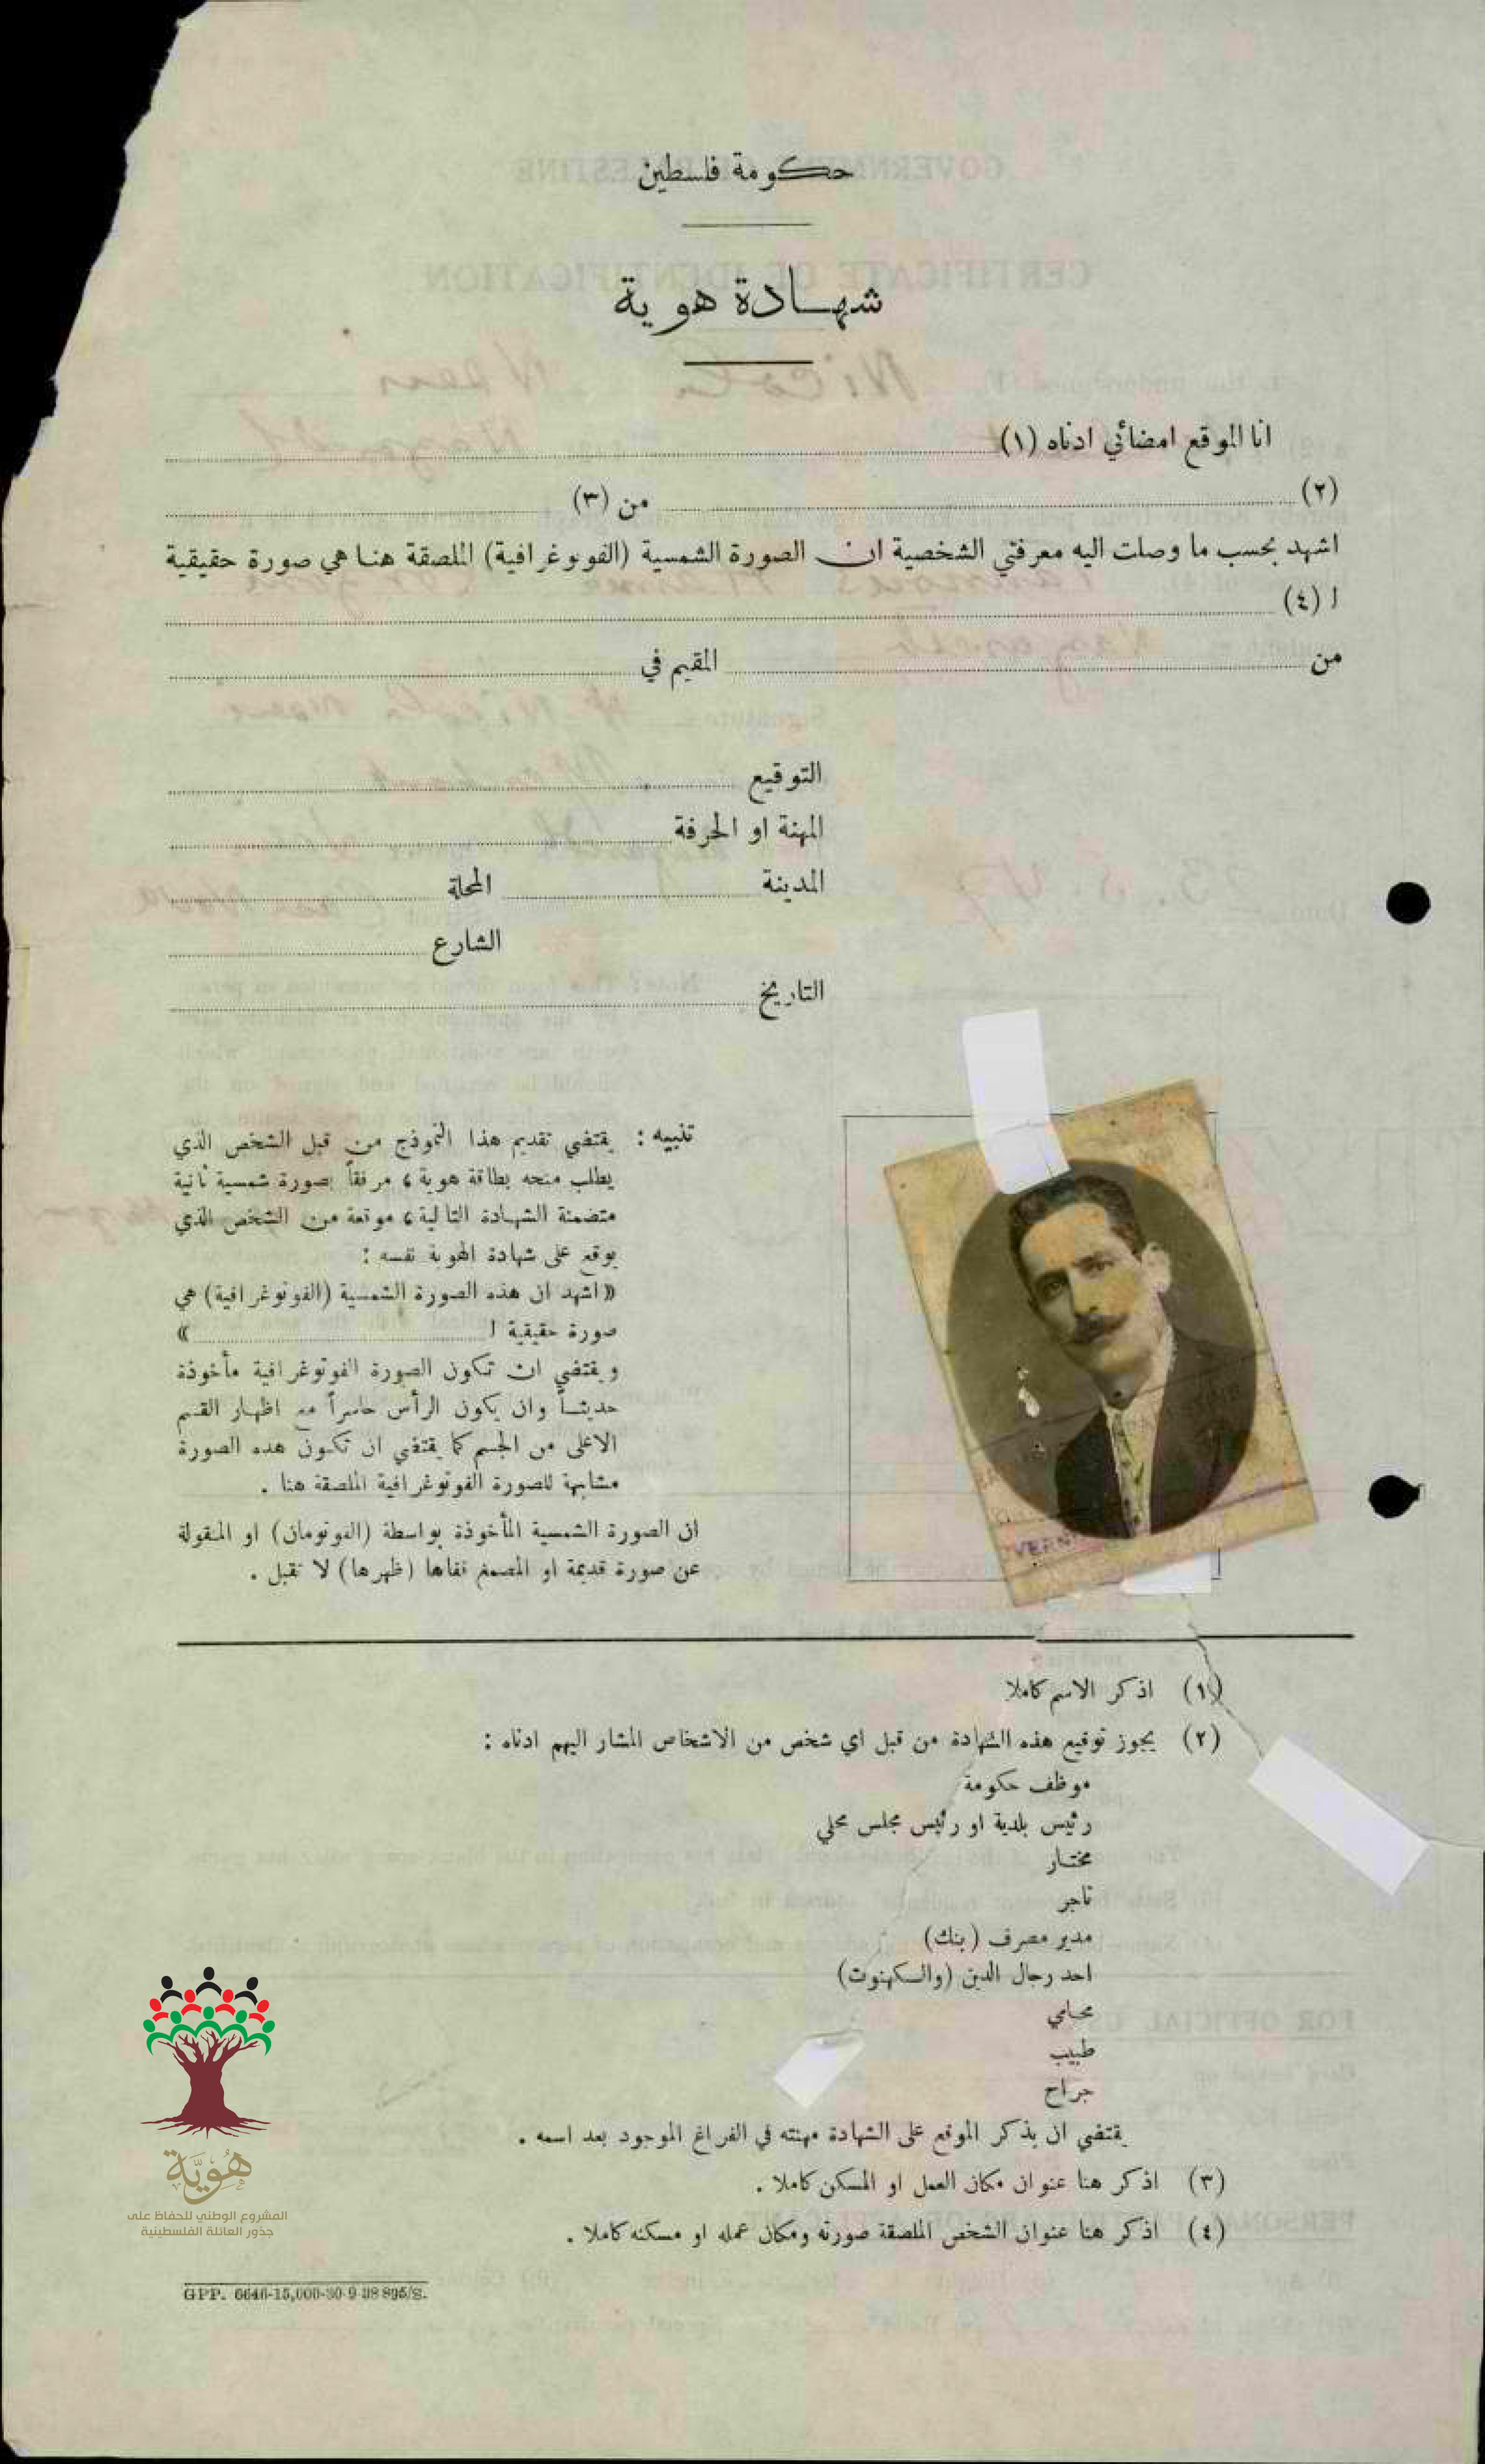 حكومة فلسطين
شهادة هوية
انا الموقع امضائي ادناه (١)
(٢) من (٣)
اشهد بحسب ما وصلت اليه معرفتي الشخصية ان الصورة الشمسية (الفوتوغرافية) الملصقة هنا هي صورة حقيقية
ا (٤)
من المقيم في
التوقيع
المهنة او الحرفة
المدينة المحلة
الشارع
التاريخ
تنبيه : يقتضي تقديم هذا النموذج من قبل الشخص الذي
يطلب منحه بطاقة هوية ، مرفقاً بصورة شمسية ثانية
متضمنة الشهادة التالية ، موقعة من الشخص الذي
يوقع على شهادة الهوية نفسه :
« اشهد ان هذه الصورة الشمسية (الفوتوغرافية) هي
صورة حقيقية ا »
ويقتضي ان تكون الصورة الفوتوغرافية مأخوذة
حديثاً وان يكون الرأس حاسراً مع اظهار القسم
الاعلى من الجسم كما يقتضي ان تكون هذه الصورة
مشابهة للصورة الفوتوغرافية الملصقة هنا .
ان الصورة الشمسية المأخوذة بواسطة (الفوتومان) او المنقولة
عن صورة قديمة او المصمغ قفاها (ظهرها) لا تقبل .
(١) اذكر الاسم كاملا
(٢) يجوز توقيع هذه الشهادة من قبل اي شخص من الاشخاص المشار اليهم ادناه :
موظف حكومة
رئيس بلدية او رئيس مجلس محلي
مختار
تاجر
مدير مصرف (بنك)
احد رجال الدين (والكهنوت)
محامي
طبيب
جراح
يقتضي ان يذكر الموقع على الشهادة مهنته في الفراغ الموجود بعد اسمه .
(٣) اذكر هنا عنوان مكان العمل او المسكن كاملا .
(٤) اذكر هنا عنوان الشخص الملصقة صورته ومكان عمله او مسكنه كاملا .
هُوِيَّة
المشروع الوطني للحفاظ على
جذور العائلة الفلسطينية
GPP. 6646-15,000-30-9-38 895/S.